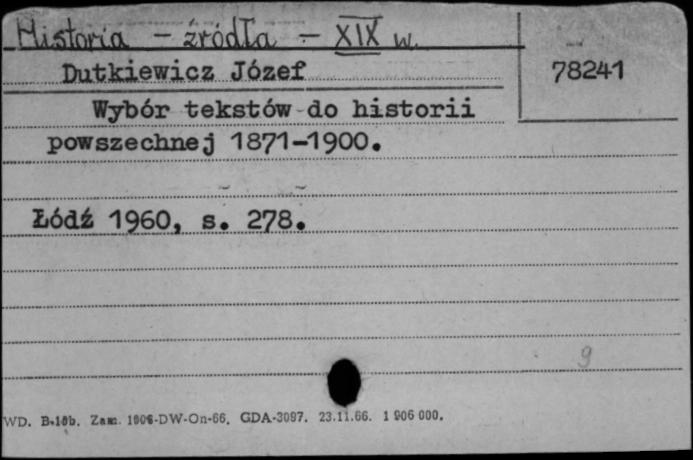 Historia – źródła – XIX w.
Dutkiewicz Józef
78241
Wybór tekstów do historii
powszechnej 1871–1900.
Łódź 1960, s. 278.
9
WD. B.16b. Zam. 1906-DW-On-66. GDA-3097. 23.11.66. 1 906 000.